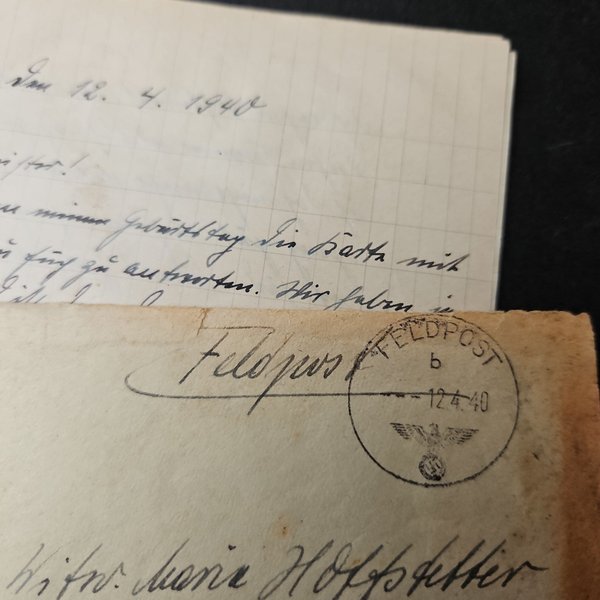 den 12. 4. 1940
meinen Geburtstag die Karte mit
Euch zu antworten. Wir haben ja
Feldpost
FELDPOST
b
12.4.40
Witw. Maria Hoffstetter